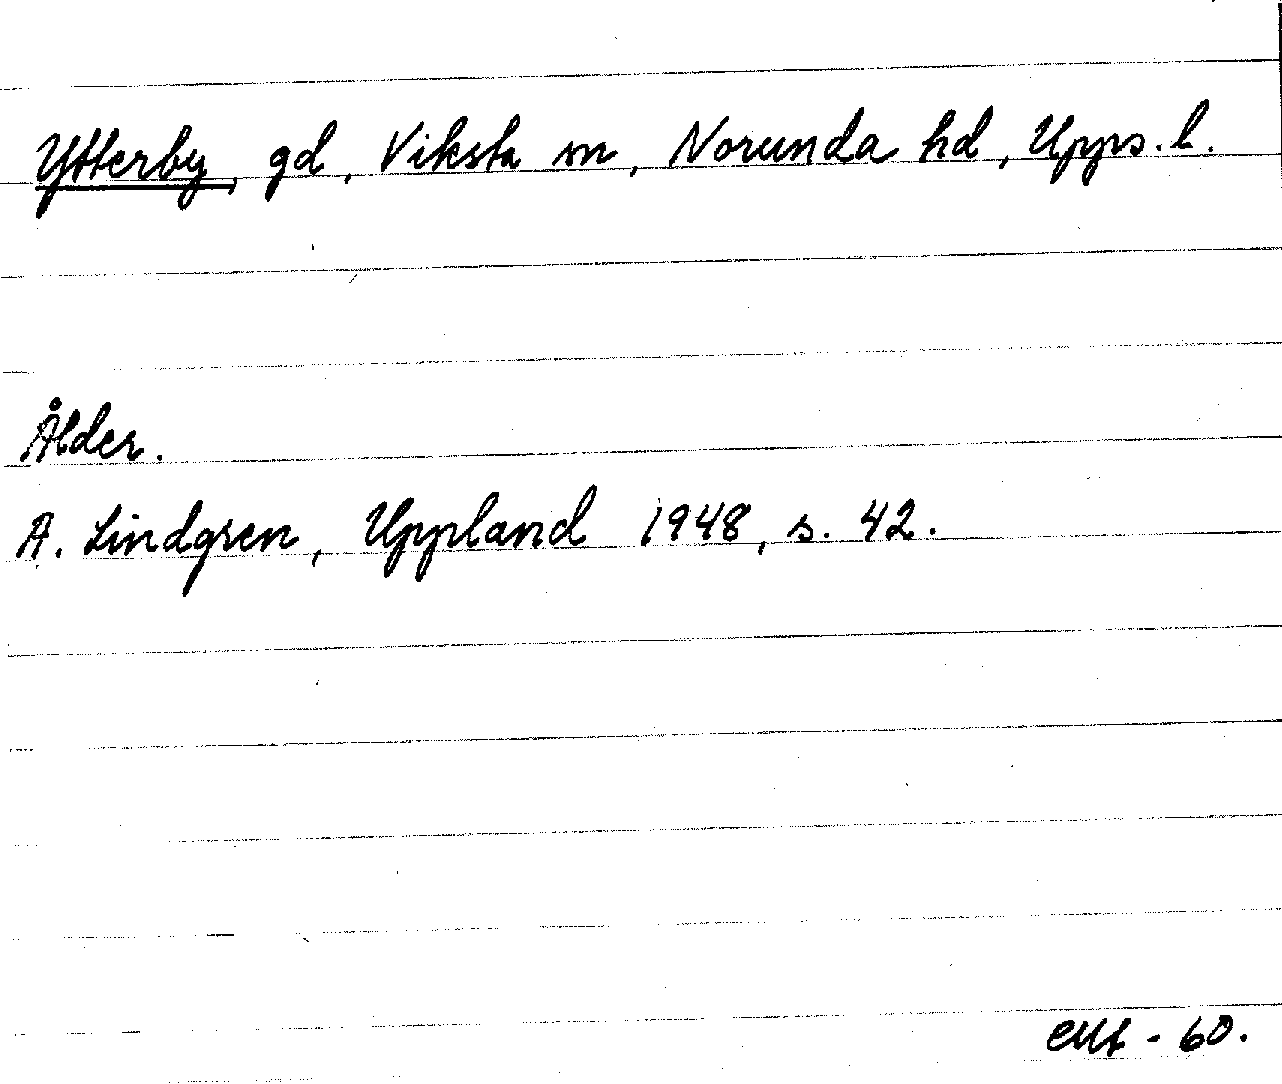 Ytterby, gd, Viksta sn, Norunda hd, Upps. l.
Ålder.
A. Lindgren, Uppland 1948, s. 42.
- 60.